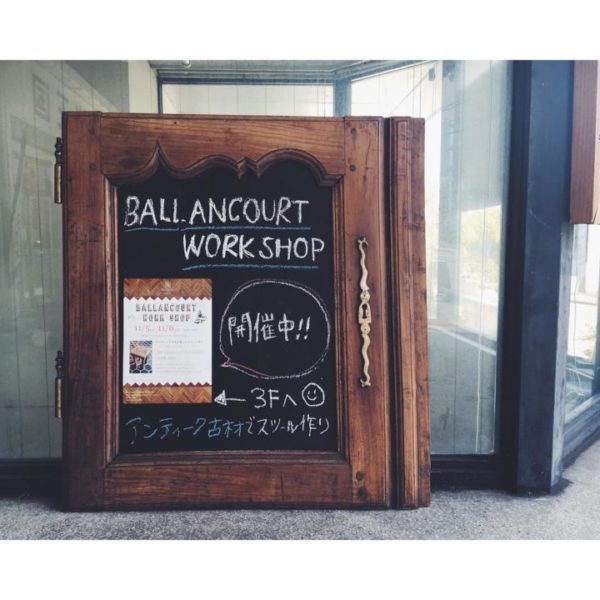 BALLANCOURT
WORKSHOP
BALLANCOURT
WORK SHOP
11/5 11/6
開催中!!
← 3Fへ
アンティーク古材でスツール作り